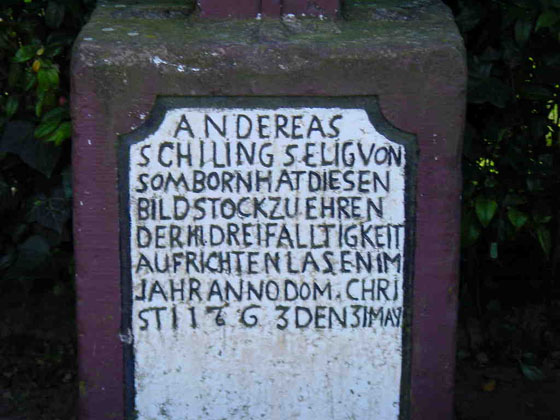 ANDEREAS
SCHILINGSELIGVON
SOMBORNHATDIESEN
BILDSTOCKZUEHREN
DERHl.DREIFALLTIGKEIT
AUFRICHTENLASENIM
JAHRANNODOM.CHRI
STI1763DEN31MAY